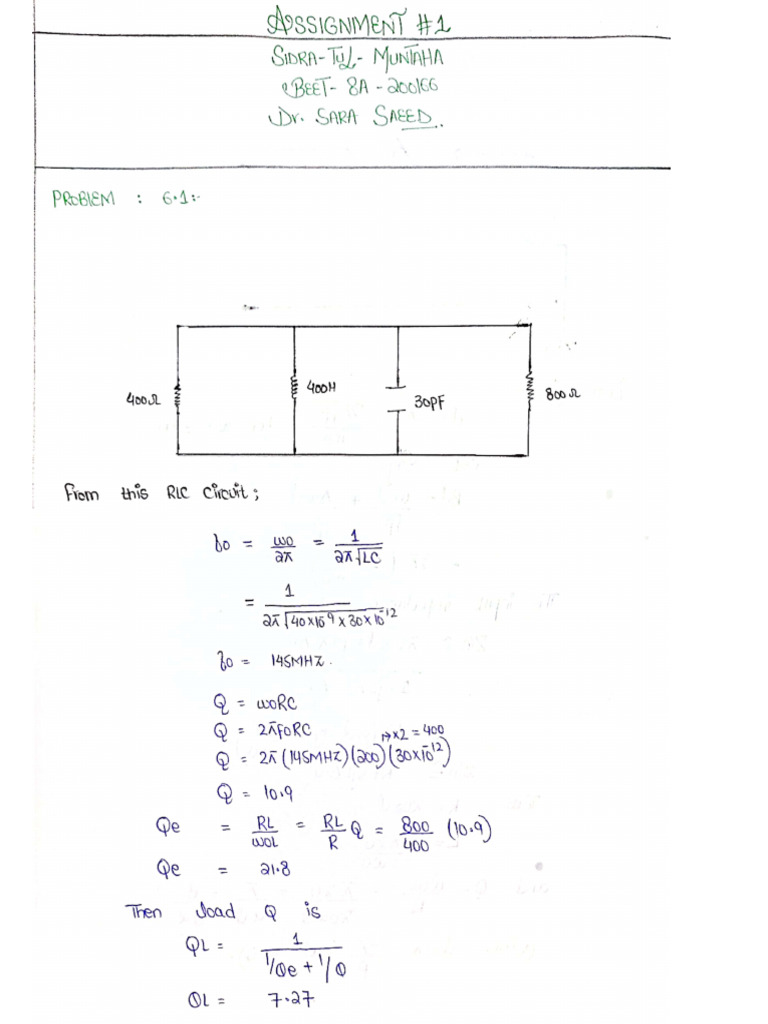 ASSIGNMENT #1
SIDRA-TUL-MUNTAHA
BEET-8A-200166
Dr. SARA SAEED.
PROBLEM : 6.1:-
400Ω
400H
30PF
800Ω
From this RLC Circuit;
fo = wo/2π = 1/2π√LC
= 1/2π√40x10⁻⁹ x 30x10⁻¹²
fo = 145MHz.
Q = woRC
Q = 2πfoRC
→x2 = 400
Q = 2π(145MHz)(200)(30x10⁻¹²)
Q = 10.9
Qe = RL/woL = RL/R Q = 800/400 (10.9)
Qe = 21.8
Then load Q is
QL = 1/(1/Qe + 1/Q)
QL = 7.27